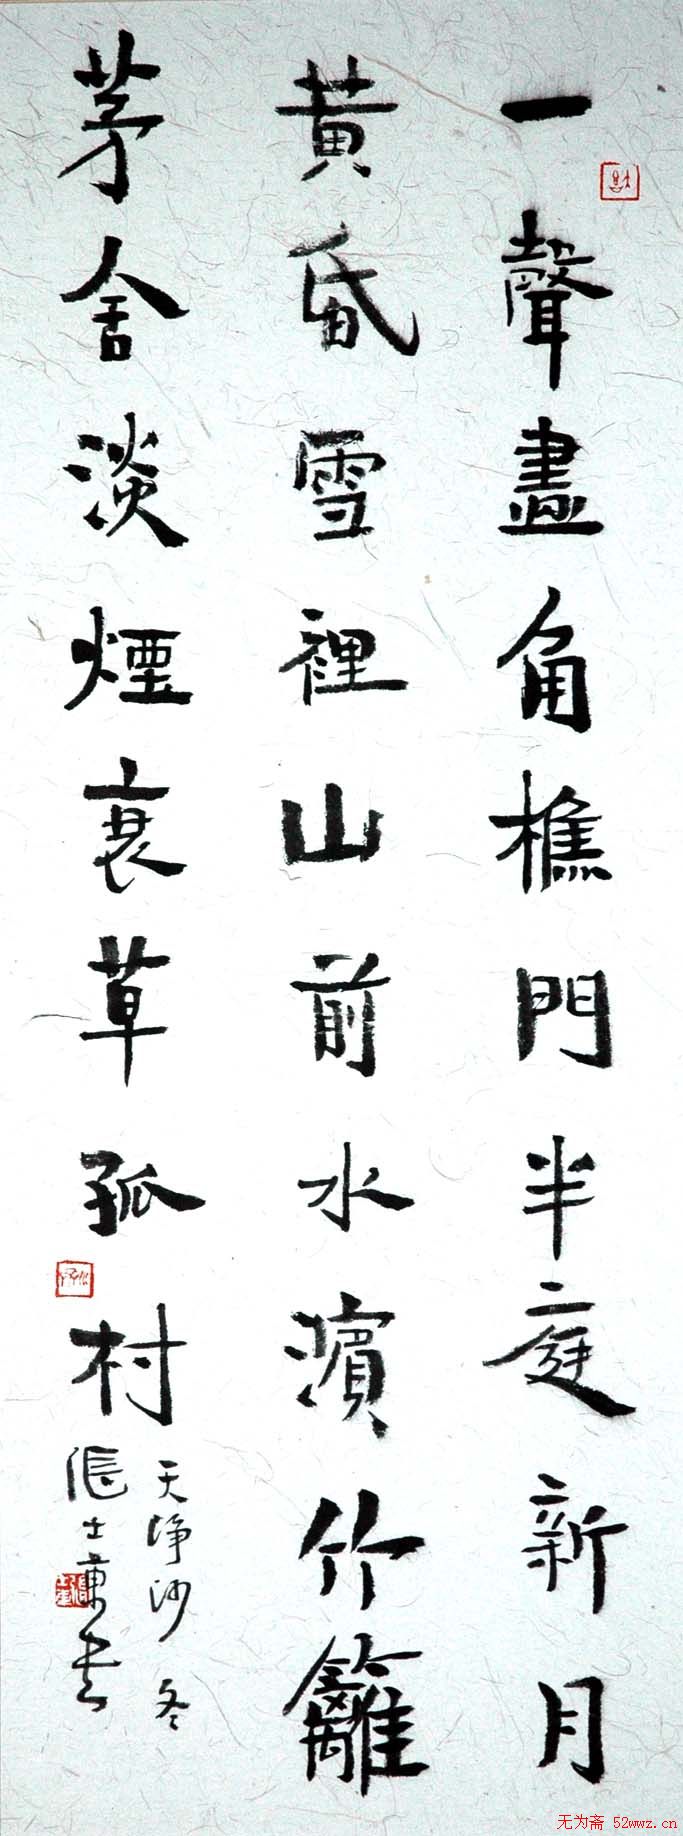 一聲畫角樵門半庭新月
黄昏雪裡山前水濱竹籬
茅舍淡煙衰草孤村
天净沙 冬
張士書
无为斋 52wwz.cn